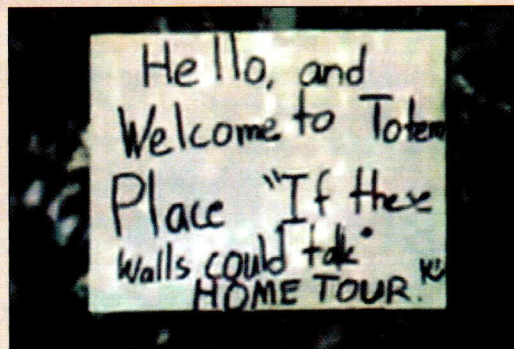 Hello, and
Welcome to Totem
Place "If these
Walls could talk"
HOME TOUR.